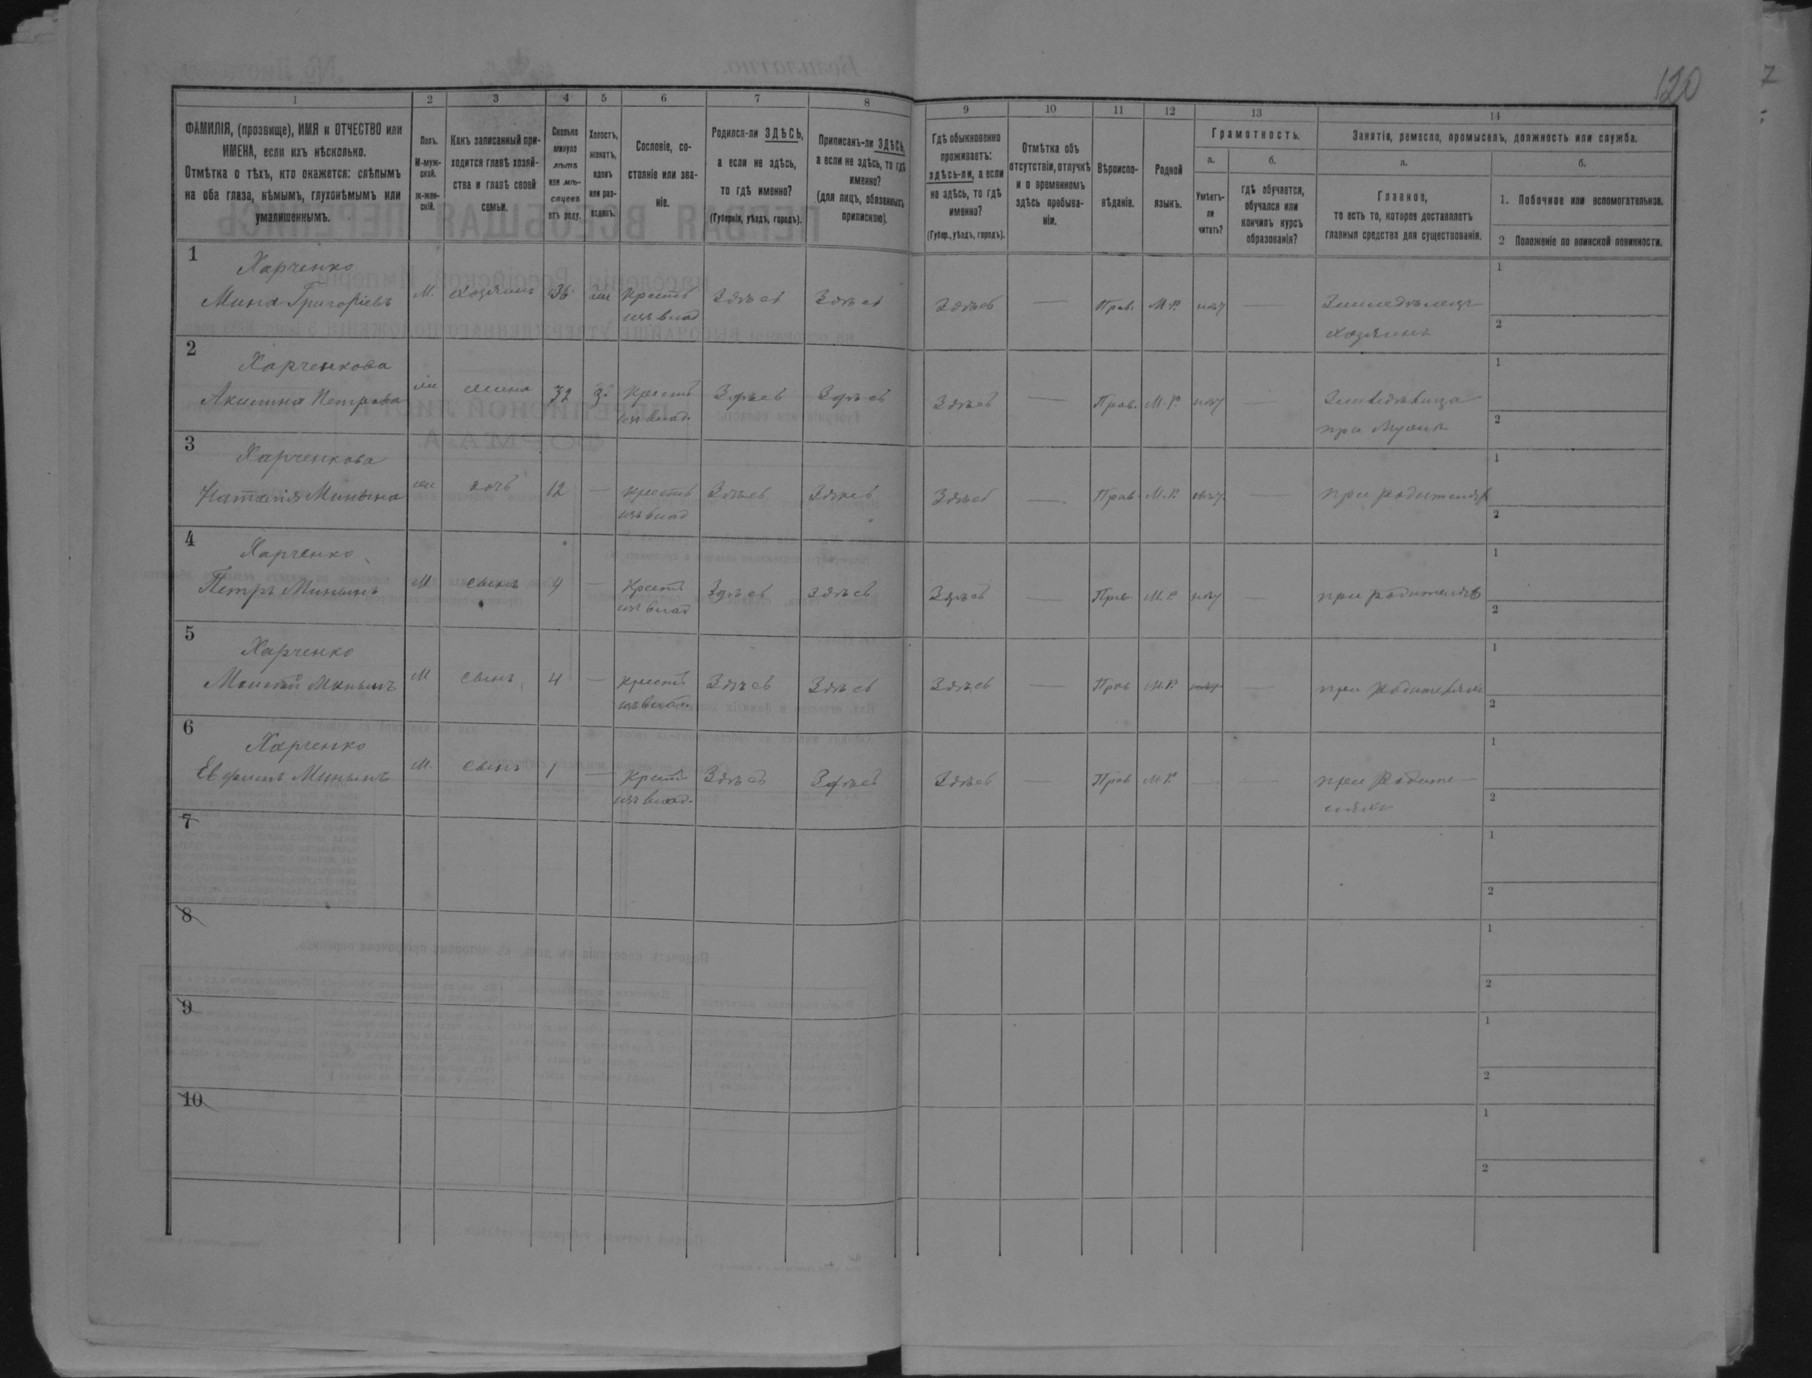 120
1 2 3 4 5 6 7 8 9 10 11 12 13 14
ФАМИЛІЯ, (прозвище), ИМЯ и ОТЧЕСТВО или
ИМЕНА, если ихъ нѣсколько.
Отмѣтка о тѣхъ, кто окажется: слѣпымъ
на оба глаза, нѣмымъ, глухонѣмымъ или
умалишеннымъ.
Полъ.
М-муж-
ской.
ж-жен-
скій.
Какъ записанный при-
ходится главѣ хозяй-
ства и главѣ своей
семьи.
Сколько
минуло
лѣтъ
или мѣ-
сяцевъ
отъ роду.
Холостъ,
женатъ,
вдовъ
или раз-
веденъ.
Сословіе, со-
стояніе или зва-
ніе.
Родился-ли ЗДѢСЬ,
а если не здѣсь,
то гдѣ именно?
(Губернія, уѣздъ, городъ).
Приписанъ-ли ЗДѢСЬ,
а если не здѣсь, то гдѣ
именно?
(для лицъ, обязанныхъ
припискою).
Гдѣ обыкновенно
проживаетъ:
здѣсь-ли, а если
не здѣсь, то гдѣ
именно?
(Губер., уѣздъ, городъ).
Отмѣтка объ
отсутствіи, отлучкѣ
и о временномъ
здѣсь пребыва-
ніи.
Вѣроиспо-
вѣданіе.
Родной
языкъ.
Грамотность.
а.
Умѣетъ-
ли
читать?
б.
гдѣ обучается,
обучался или
кончилъ курсъ
образованія?
Занятія, ремесло, промыселъ, должность или служба.
а.
Главное,
то есть то, которое доставляетъ
главныя средства для существованія.
б.
1. Побочное или вспомогательное.
2 Положеніе по воинской повинности.
1 Харченко
Мина Григоріевъ М. хозяинъ 36 Крестъ Здѣсь Здѣсь Здѣсь — Прав. М.Р. — Земледѣлецъ 1
изъ влад хозяинъ 2
2 Харченкова
Петрова жена 32 Крестъ Здѣсь Здѣсь Здѣсь — Прав. М.Р. — 1
изъ влад. при мужѣ 2
3 Харченкова
Наталія Минина дочь 12 — крестъ Здѣсь Здѣсь Здѣсь — Прав. М.Р. — при родителяхъ 1
изъ влад 2
4 Харченко
Петръ Мининъ М сынъ 9 — Крестъ Здѣсь Здѣсь Здѣсь — Прав М.Р. — при родителяхъ 1
изъ влад 2
5 Харченко
Мининъ М сынъ 4 — крестъ Здѣсь Здѣсь Здѣсь — Прав М.Р. — при родителяхъ 1
изъ влад 2
6 Харченко
Евфимъ Мининъ М. сынъ 1 — Крестъ Здѣсь Здѣсь Здѣсь — Прав М.Р. — — при родите- 1
изъ влад. ляхъ 2
7 1
2
8 1
2
9 1
2
10 1
2